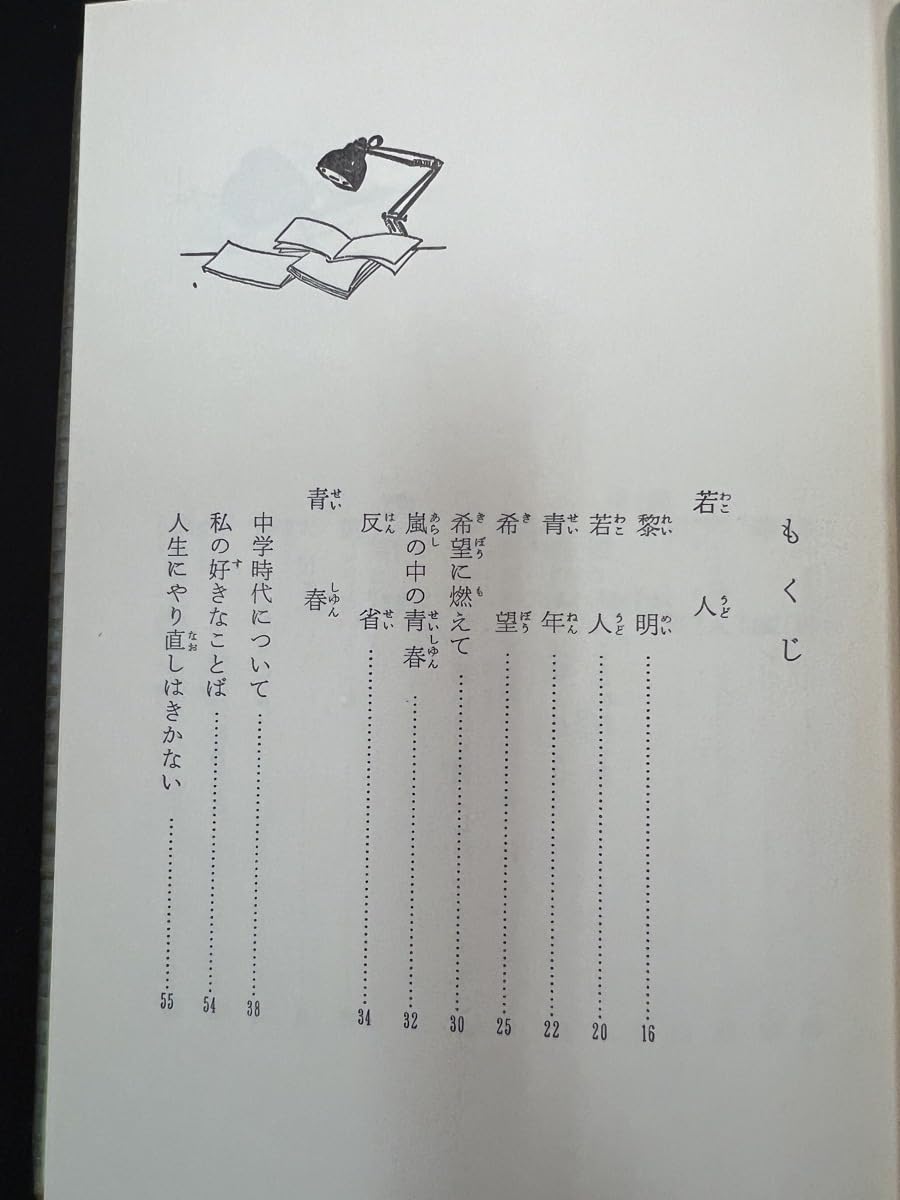 もくじ
若人
黎明……16
若人……20
青年……22
希望……25
希望に燃えて……30
嵐の中の青春……32
反省……34
青春
中学時代について……38
私の好きなことば……54
人生にやり直しはきかない……55